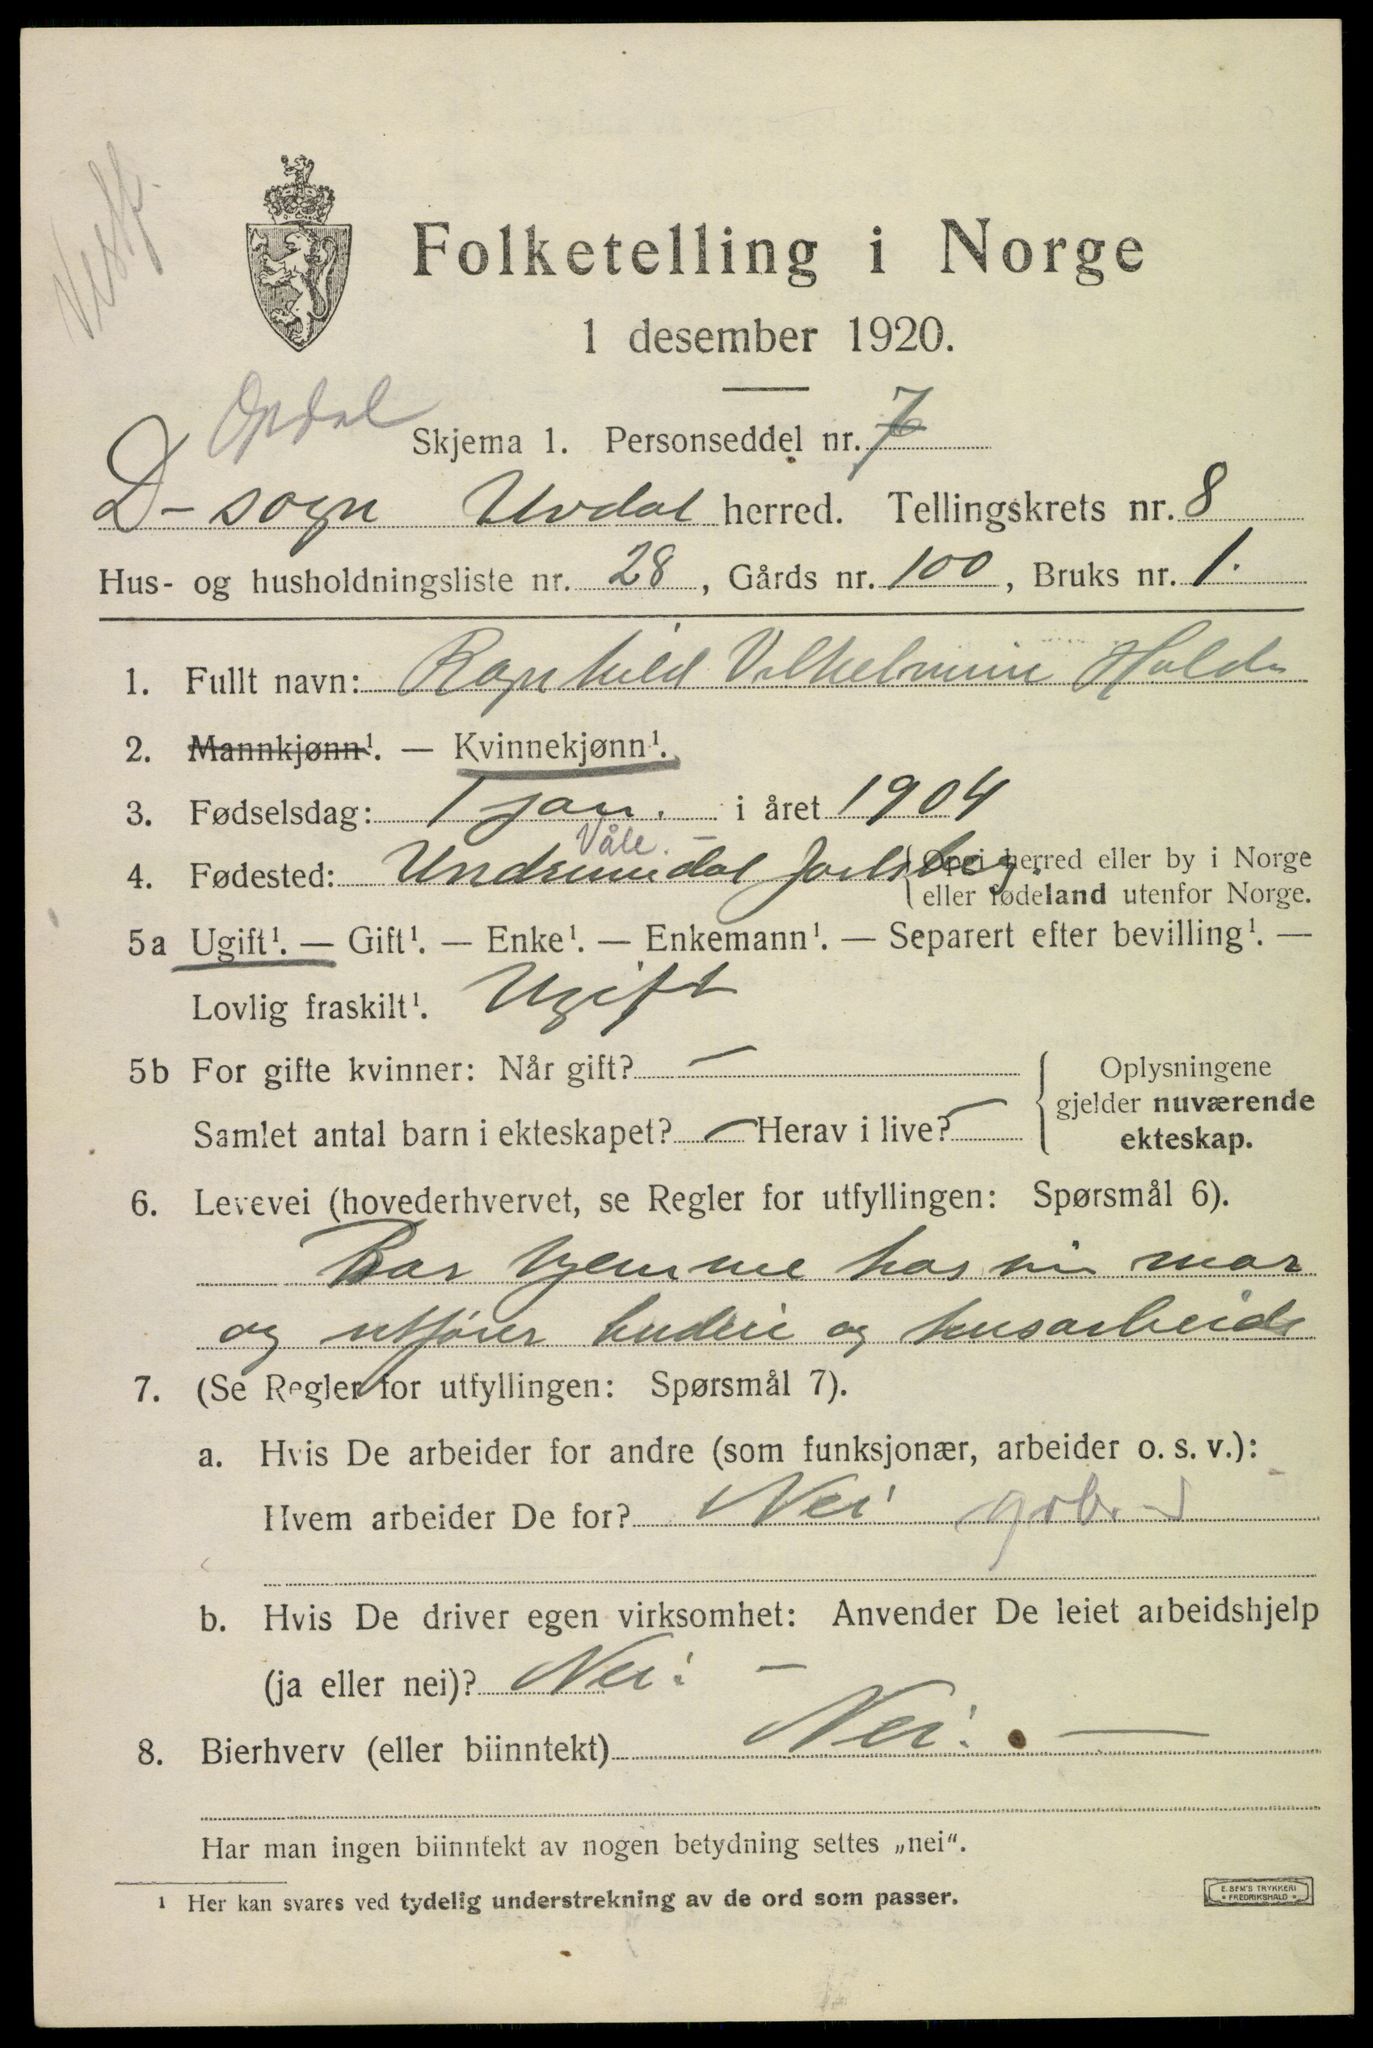 Vestf.
Folketelling i Norge
1 desember 1920.
Opdal
Skjema 1. Personseddel nr. 7
D-sogn Uvdal herred. Tellingskrets nr. 8
Hus- og husholdningsliste nr. 28, Gårds nr. 100, Bruks nr. 1.
1. Fullt navn: Ragnhild Vilhelmine
2. Mannkjønn¹. — Kvinnekjønn¹.
3. Fødselsdag: 1 jan. i året 1904
Våle. —
4. Fødested: Undrumsdal Jarlsberg. {Opgi herred eller by i Norge
eller fødeland utenfor Norge.
5a Ugift¹. — Gift¹. — Enke¹. — Enkemann¹. — Separert efter bevilling¹. —
Lovlig fraskilt¹. Ugift
5b For gifte kvinner: Når gift? — {Oplysningene
gjelder nuværende
Samlet antal barn i ekteskapet? — Herav i live? —
ekteskap.
6. Levevei (hovederhvervet, se Regler for utfyllingen: Spørsmål 6).
Bor hjemme hos sin mor
og utfører budeie og husarbeide
7. (Se Regler for utfyllingen: Spørsmål 7).
a. Hvis De arbeider for andre (som funksjonær, arbeider o. s. v.):
Hvem arbeider De for? Nei
b. Hvis De driver egen virksomhet: Anvender De leiet arbeidshjelp
(ja eller nei)? Nei. —
8. Bierhverv (eller biinntekt) Nei. —
Har man ingen biinntekt av nogen betydning settes „nei“.
¹ Her kan svares ved tydelig understrekning av de ord som passer.
E. SEM'S TRYKKERI
FREDRIKSHALD